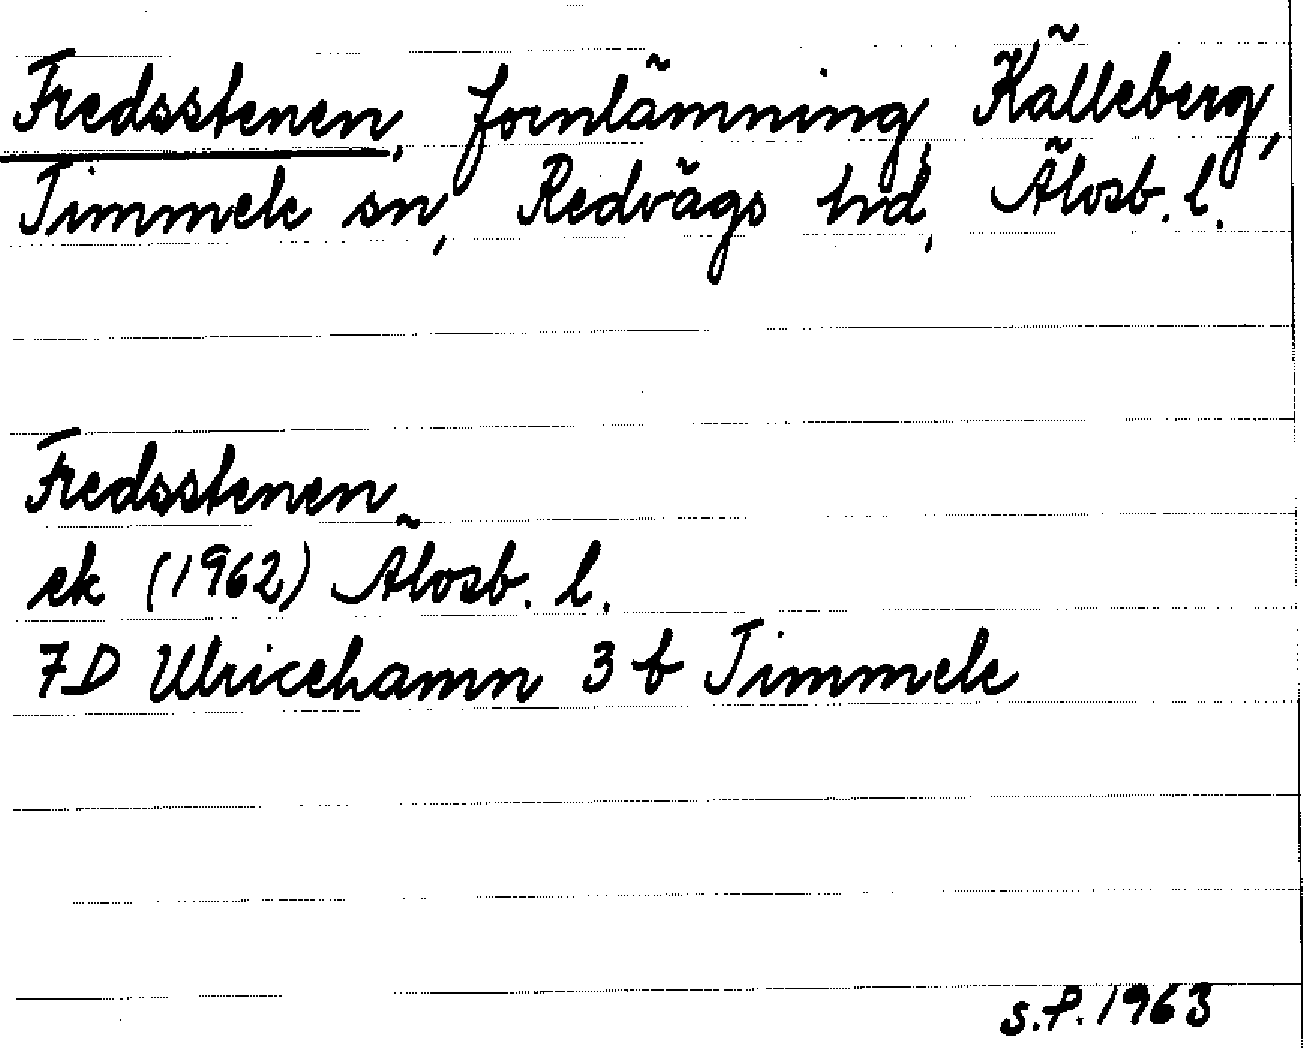 Fredsstenen, fornlämning, Källeberg,
Timmele sn, Redvägs hd, Älvsb. l.
Fredsstenen
ek (1962) Älvsb. l.
7D Ulricehamn 3 b Timmele
S.P. 1963